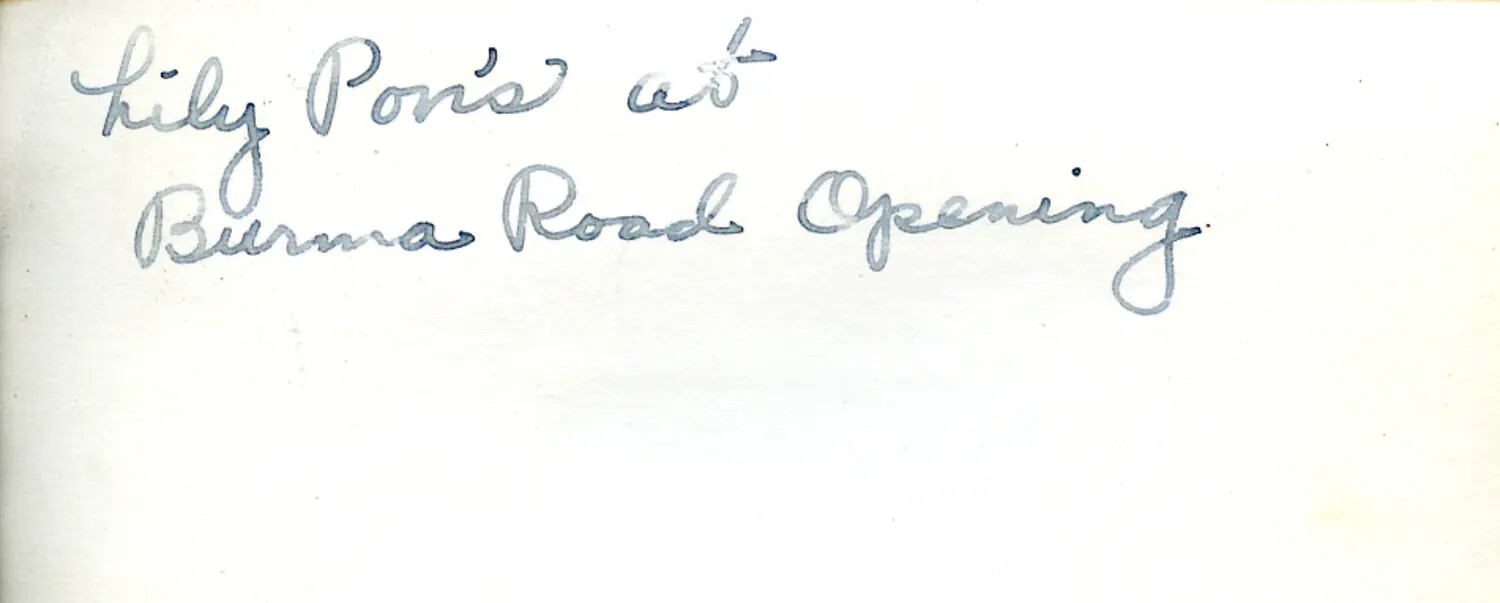 Lily Pon's at
Burma Road Opening